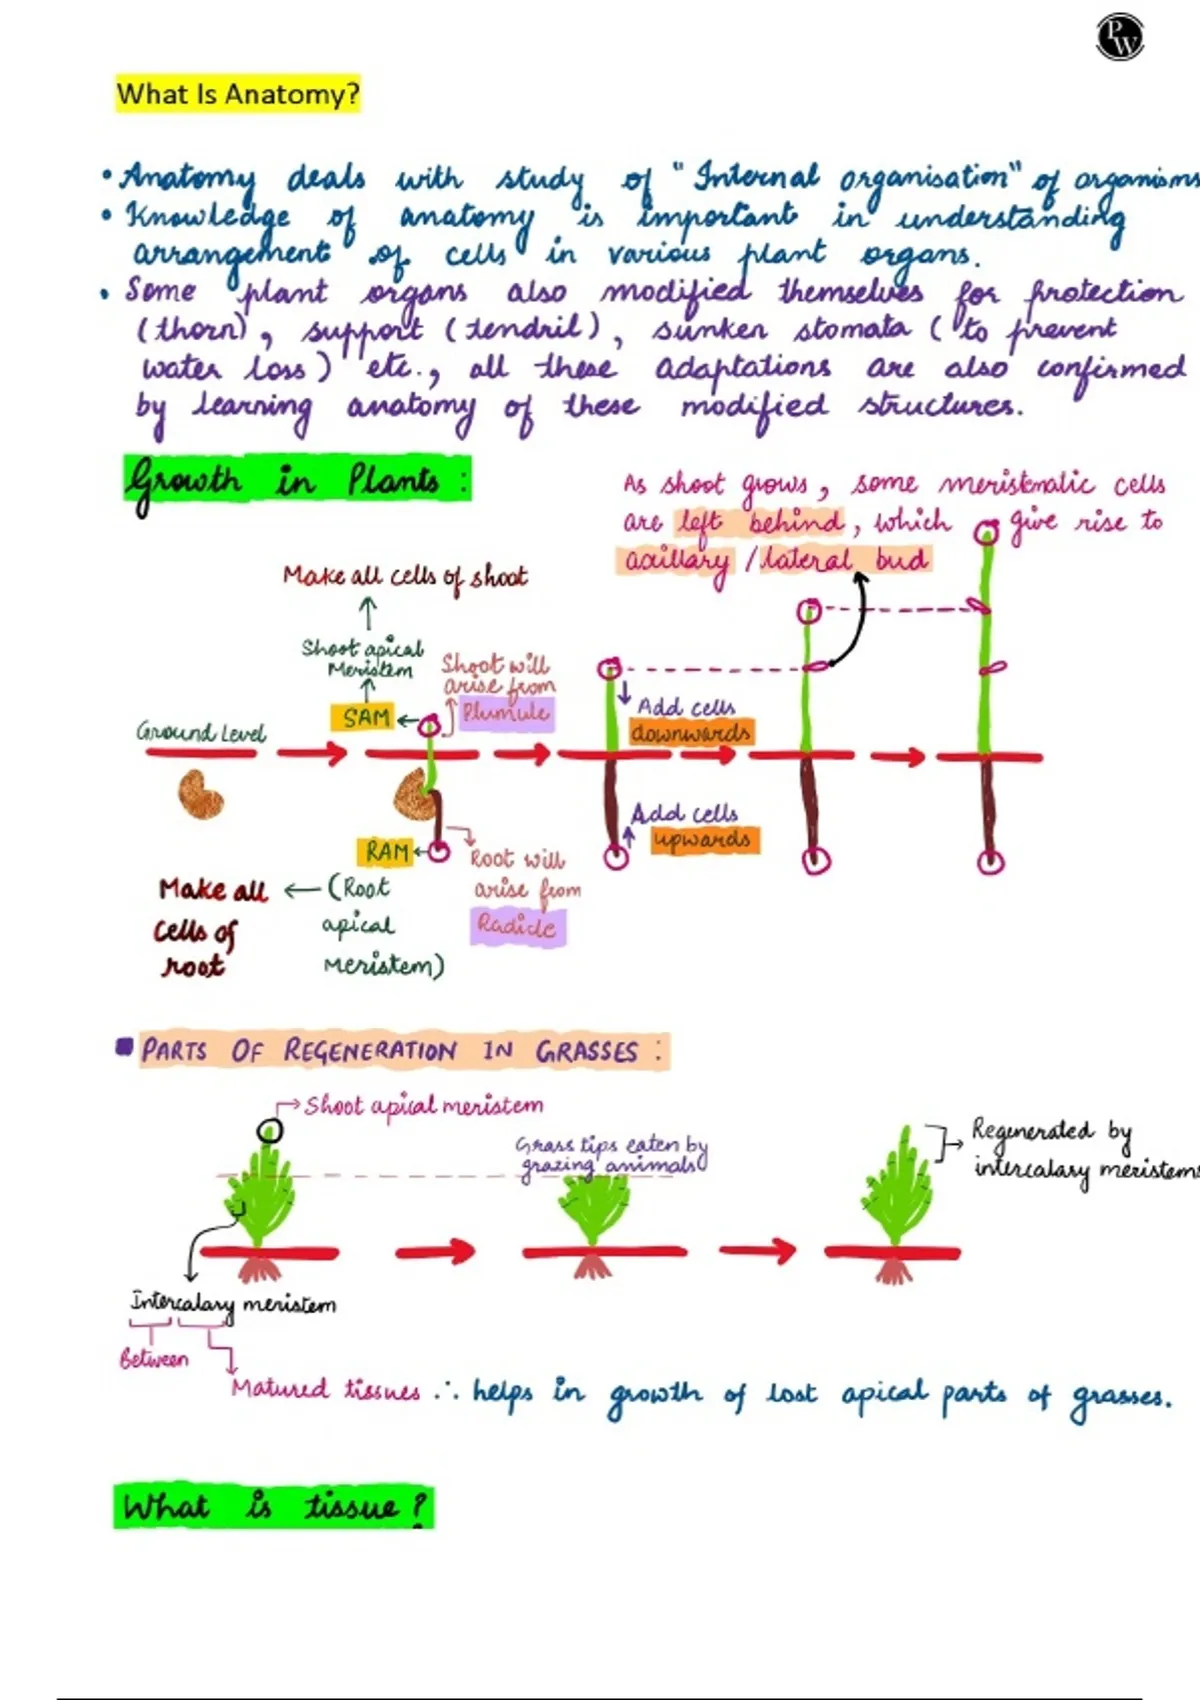 PW
What Is Anatomy?
• Anatomy deals with study of "Internal organisation" of organisms
• Knowledge of anatomy is important in understanding
arrangement of cells in various plant organs.
• Some plant organs also modified themselves for protection
(thorn), support (tendril), sunken stomata (to prevent
water loss) etc., all these adaptations are also confirmed
by learning anatomy of these modified structures.
Growth in Plants :
As shoot grows, some meristematic cells
are left behind, which give rise to
axillary / lateral bud
Make all cells of shoot
Shoot apical
Meristem
SAM
Shoot will
arise from
Plumule
Ground Level
Add cells
downwards
Add cells
upwards
RAM
(Root
apical
Meristem)
Make all
cells of
root
Root will
arise from
Radicle
PARTS OF REGENERATION IN GRASSES :
Shoot apical meristem
Grass tips eaten by
grazing animals
Regenerated by
intercalary meristems
Intercalary meristem
Between
Matured tissues ∴ helps in growth of lost apical parts of grasses.
What is tissue?